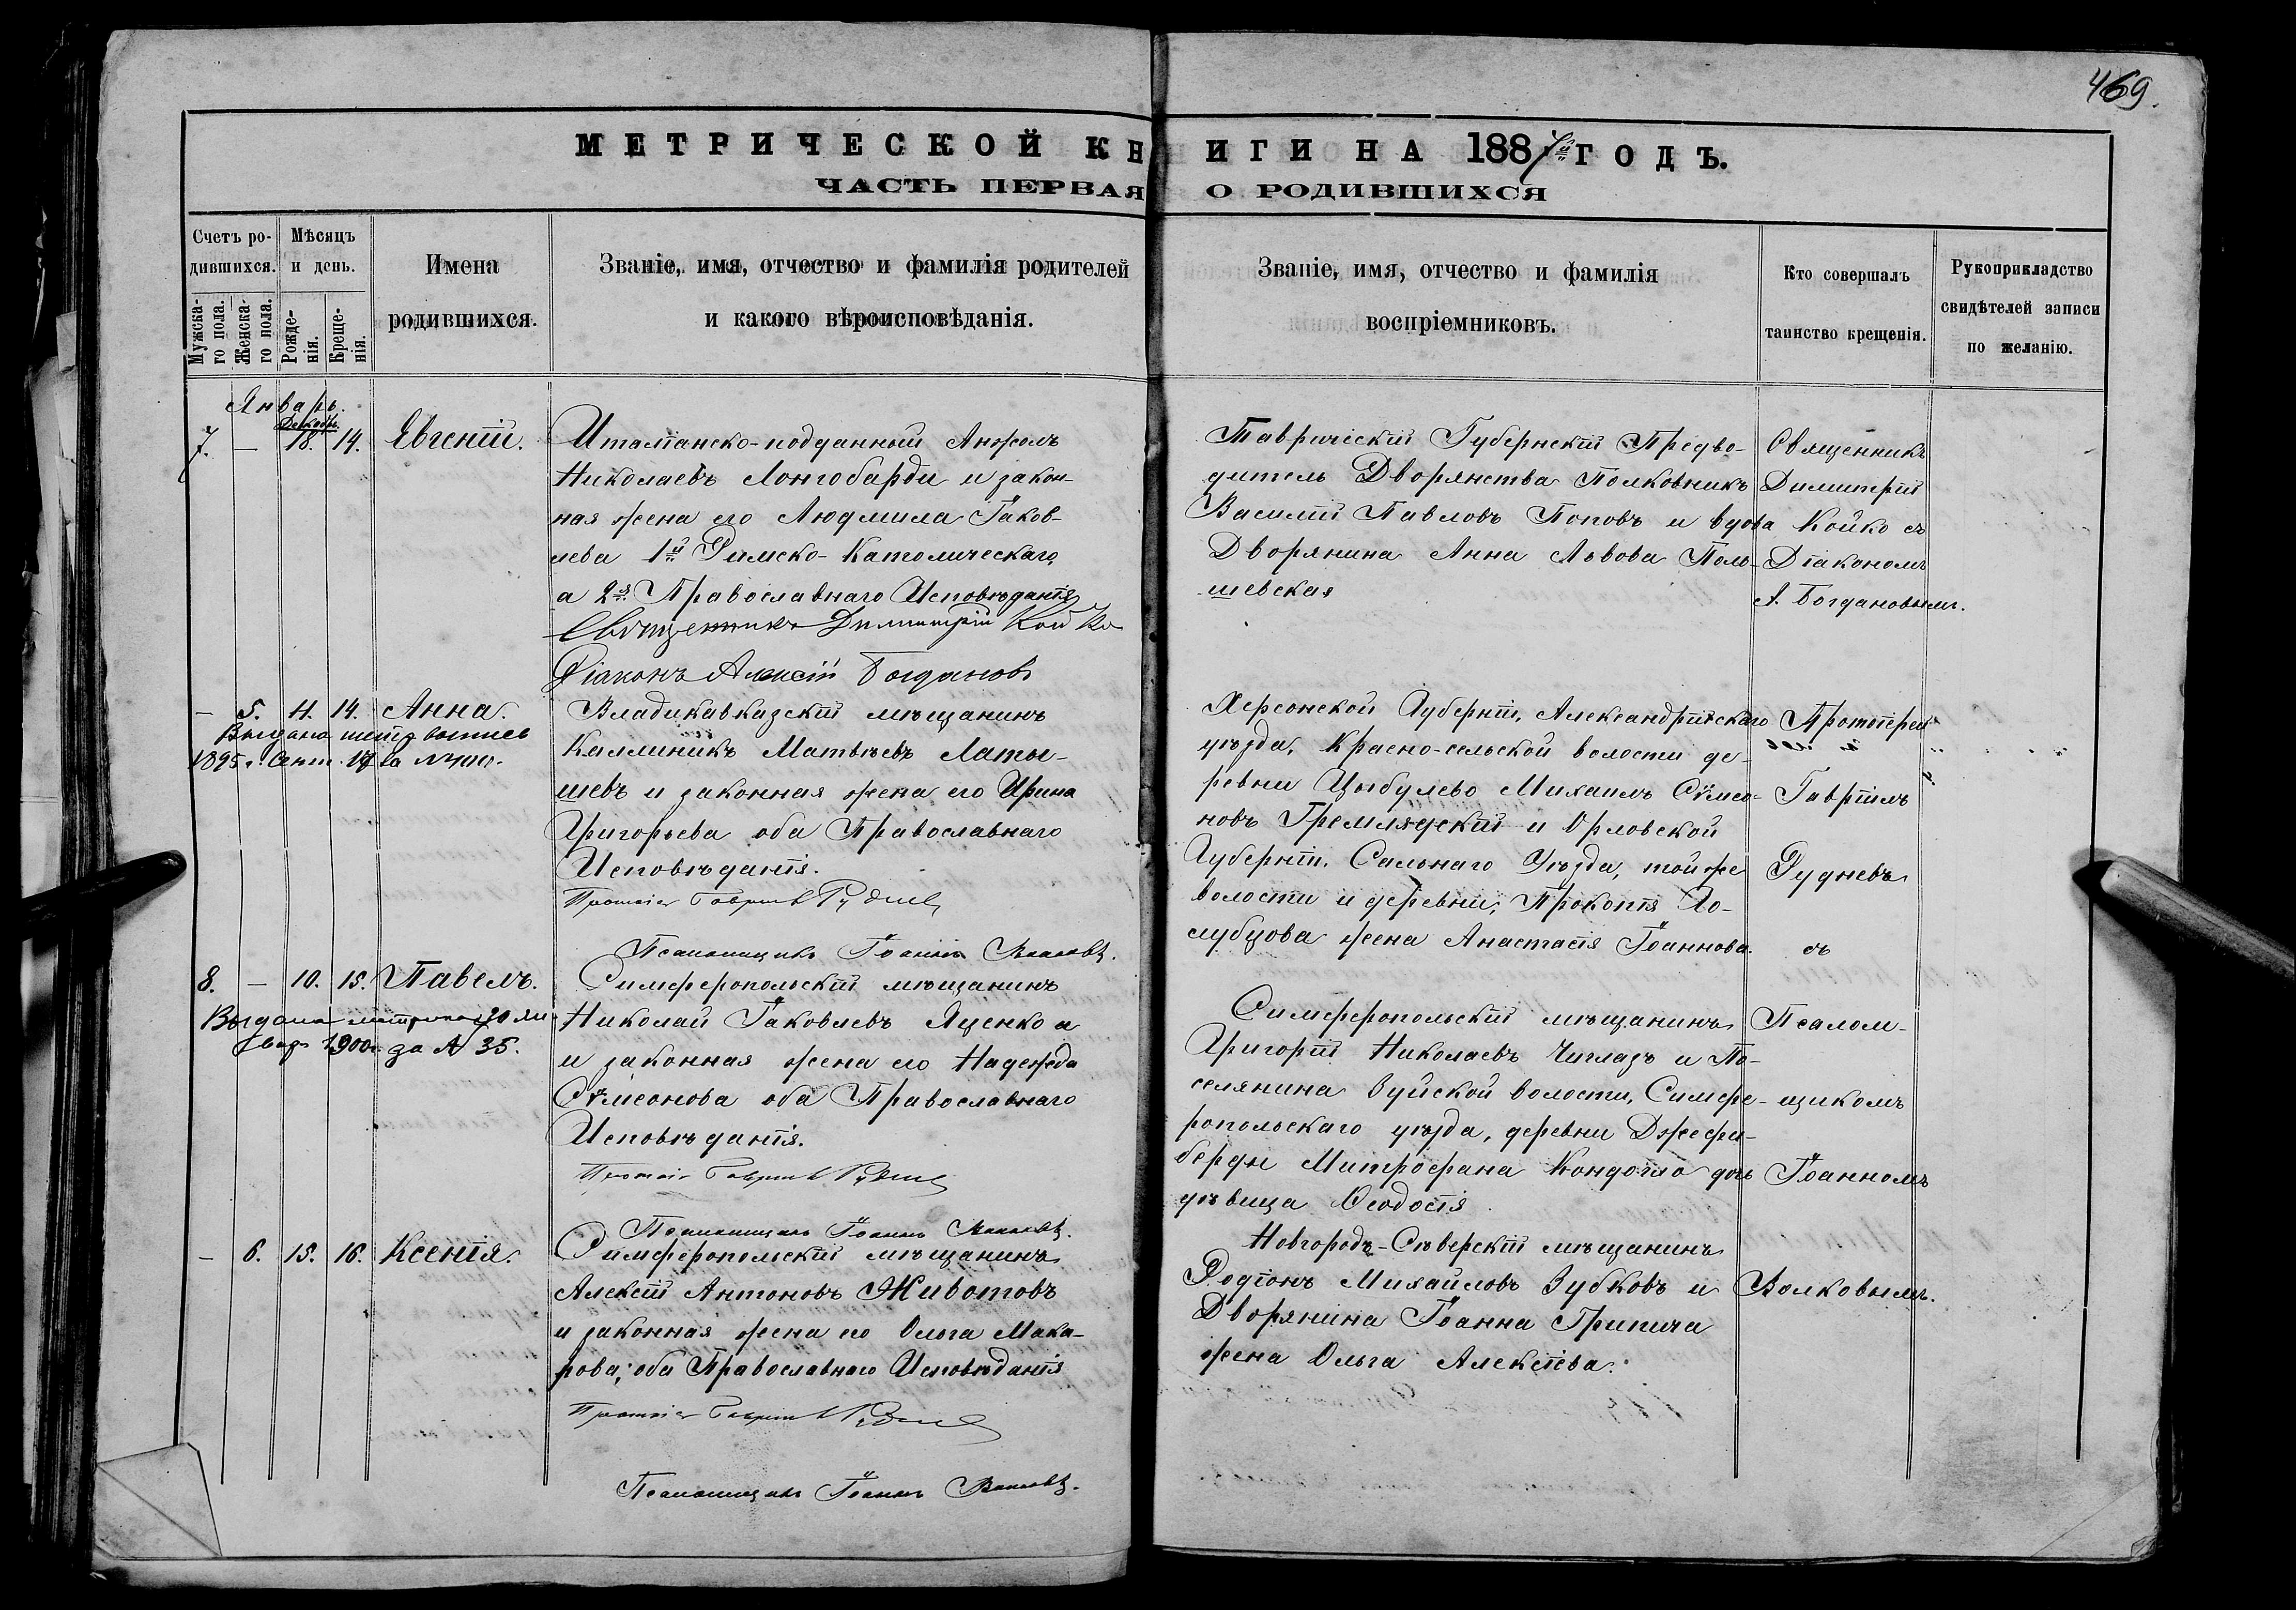 469.
МЕТРИЧЕСКОЙ КНИГИ НА 1887й ГОДЪ.
ЧАСТЬ ПЕРВАЯ О РОДИВШИХСЯ
Счетъ ро-
дившихся.
Мужска-
го пола.
Женска-
го пола.
Мѣсяцъ
и день.
Рожде-
нія.
Креще-
нія.
Имена
родившихся.
Званіе, имя, отчество и фамилія родителей
и какого вѣроисповѣданія.
Званіе, имя, отчество и фамилія
воспріемниковъ.
Кто совершалъ
таинство крещенія.
Рукоприкладство
свидѣтелей записи
по желанію.
Январь.
Декабр.
7. — 18. 14. Евгеній.
Италіанско-подданный Анжелъ
Николаевъ Лонгобарди и закон-
ная жена его Людмила Іаков-
лева 1й Римско-Католическаго,
а 2я Православнаго Исповѣданія
Священникъ Димитрій Койко
Діаконъ Алексій Богдановъ
Таврическій Губернскій Предво-
дитель Дворянства Полковникъ
Василій Павловъ Поповъ и вдова
Дворянина Анна Львова Поль-
шевская
Священникъ
Димитрій
Койко съ
Діакономъ
А. Богдановымъ.
— 5. 4. 14. Анна.
Выдана
1895 г. Сент. 19 за №
Владикавказскій мѣщанинъ
Каллиникъ Матвѣевъ Латы-
шевъ и законная жена его Ирина
Григорьева оба Православнаго
Исповѣданія.
Протоіер Гавріилъ Рудневъ
Псаломщикъ Іоаннъ Волковъ.
Херсонской Губерніи, Александрійскаго
уѣзда, Красно-сельской волости де-
ревни Цыбулево Михаилъ Сѵмео-
новъ Гремляцкій и Орловской
Губерніи, Сальнаго Уѣзда, той же
волости и деревни, Прокопія Го-
лубцова жена Анастасія Іоаннова.
Протоіерей
Гавріилъ
Рудневъ
съ
8. — 10. 15. Павелъ.
Выдана метрика 20 ян
варя 1900 г за № 35.
Симферопольскій мѣщанинъ
Николай Іаковлевъ Яценко а
и законная жена его Надежда
Сѵмеонова оба Православнаго
Исповѣданія.
Протоіер Гавріилъ Рудневъ
Псаломщикъ Іоаннъ Волковъ.
Симферопольскій мѣщанинъ
Григорій Николаевъ Чиглазъ и По-
селянина Зуйской волости, Симфе-
ропольскаго уѣзда, деревни Джефи-
берды Митрофана Кондогло дочь
дѣвица Ѳеодосія
Псалом-
щикомъ
Іоанномъ
— 6. 15. 16. Ксенія.
Симферопольскій мѣщанинъ
Алексій Антоновъ Животовъ
и законная жена его Ольга Мака-
рова, оба Православнаго Исповѣданія
Протоіер Гавріилъ Рудневъ
Псаломщикъ Іоаннъ Волковъ.
Новгородъ-Сѣверскій мѣщанинъ
Родіонъ Михайловъ Зубковъ и
Дворянина Іоанна Грипича
жена Ольга Алексіева.
Волковымъ.